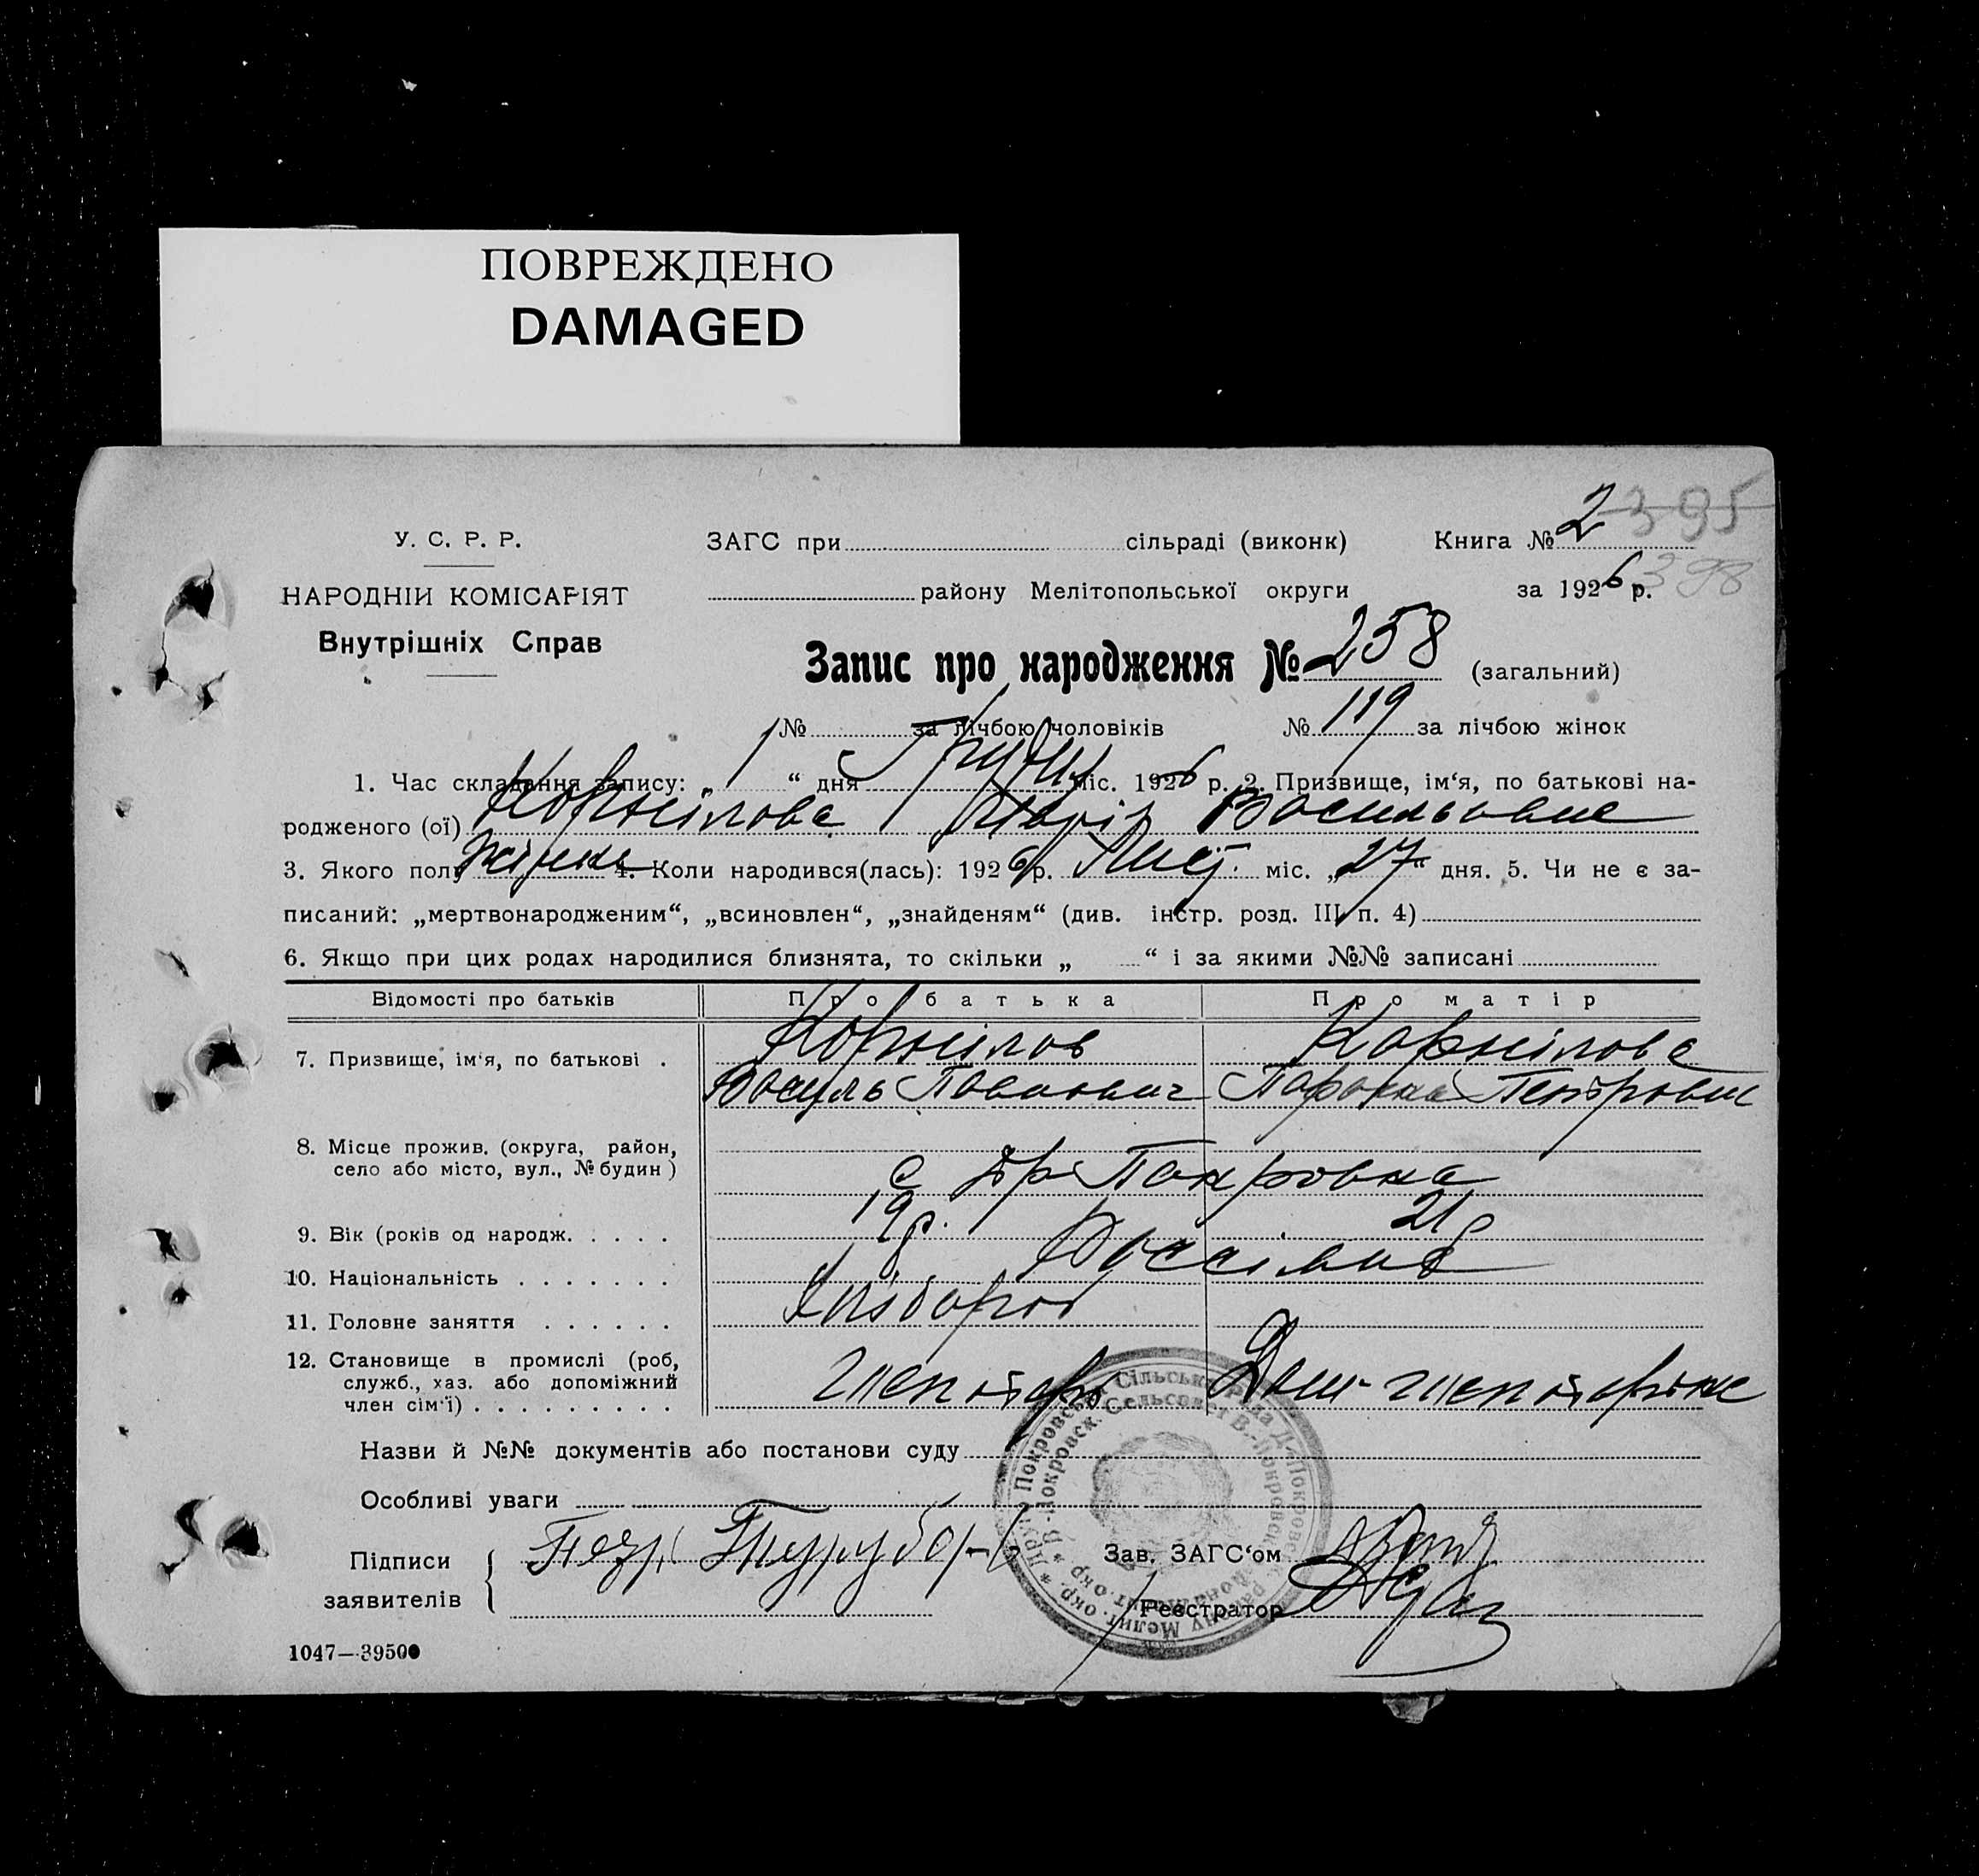 ПОВРЕЖДЕНО
DAMAGED
395
У. С. Р. Р. ЗАГС при сільраді (виконк) Книга № 2
398
НАРОДНІЙ КОМІСАРІЯТ району Мелітопольської округи за 1926 р.
Внутрішніх Справ
Запис про народження № 258 (загальний)
№ за лічбою чоловіків № 119 за лічбою жінок
1. Час складання запису: „ 1 “ дня Грудня міс. 1926 р. 2. Призвище, ім‘я, по батькові на-
родженого (ої) Корнілова Марія Васильовна
3. Якого полу жіноч 4. Коли народився(лась): 1926 р. Лист. міс. „27“ дня. 5. Чи не є за-
писаний: „мертвонародженим“, „всиновлен“, „знайденям“ (див. інстр. розд. III п. 4)
6. Якщо при цих родах народилися близнята, то скільки „ “ і за якими №№ записані
Відомості про батьків Про батька Про матір
7. Призвище, ім‘я, по батькові . Корнілов Корнілова
Василь Павлович Петровна
8. Місце прожив. (округа, район,
село або місто, вул., № будин ) с Др Покровка
9. Вік (років од народж. . . . . 19 р. 21 р
10. Національність . . . . . . .
11. Головне заняття . . . . . . Хлібороб
12. Становище в промислі (роб,
служб., хаз. або допоміжний
член сім‘ї) . . . . . . . . .
Назви й №№ документів або постанови суду
Особливі уваги
Підписи
заявителів
Зав. ЗАГС‘ом
Реєстратор
1047—39500